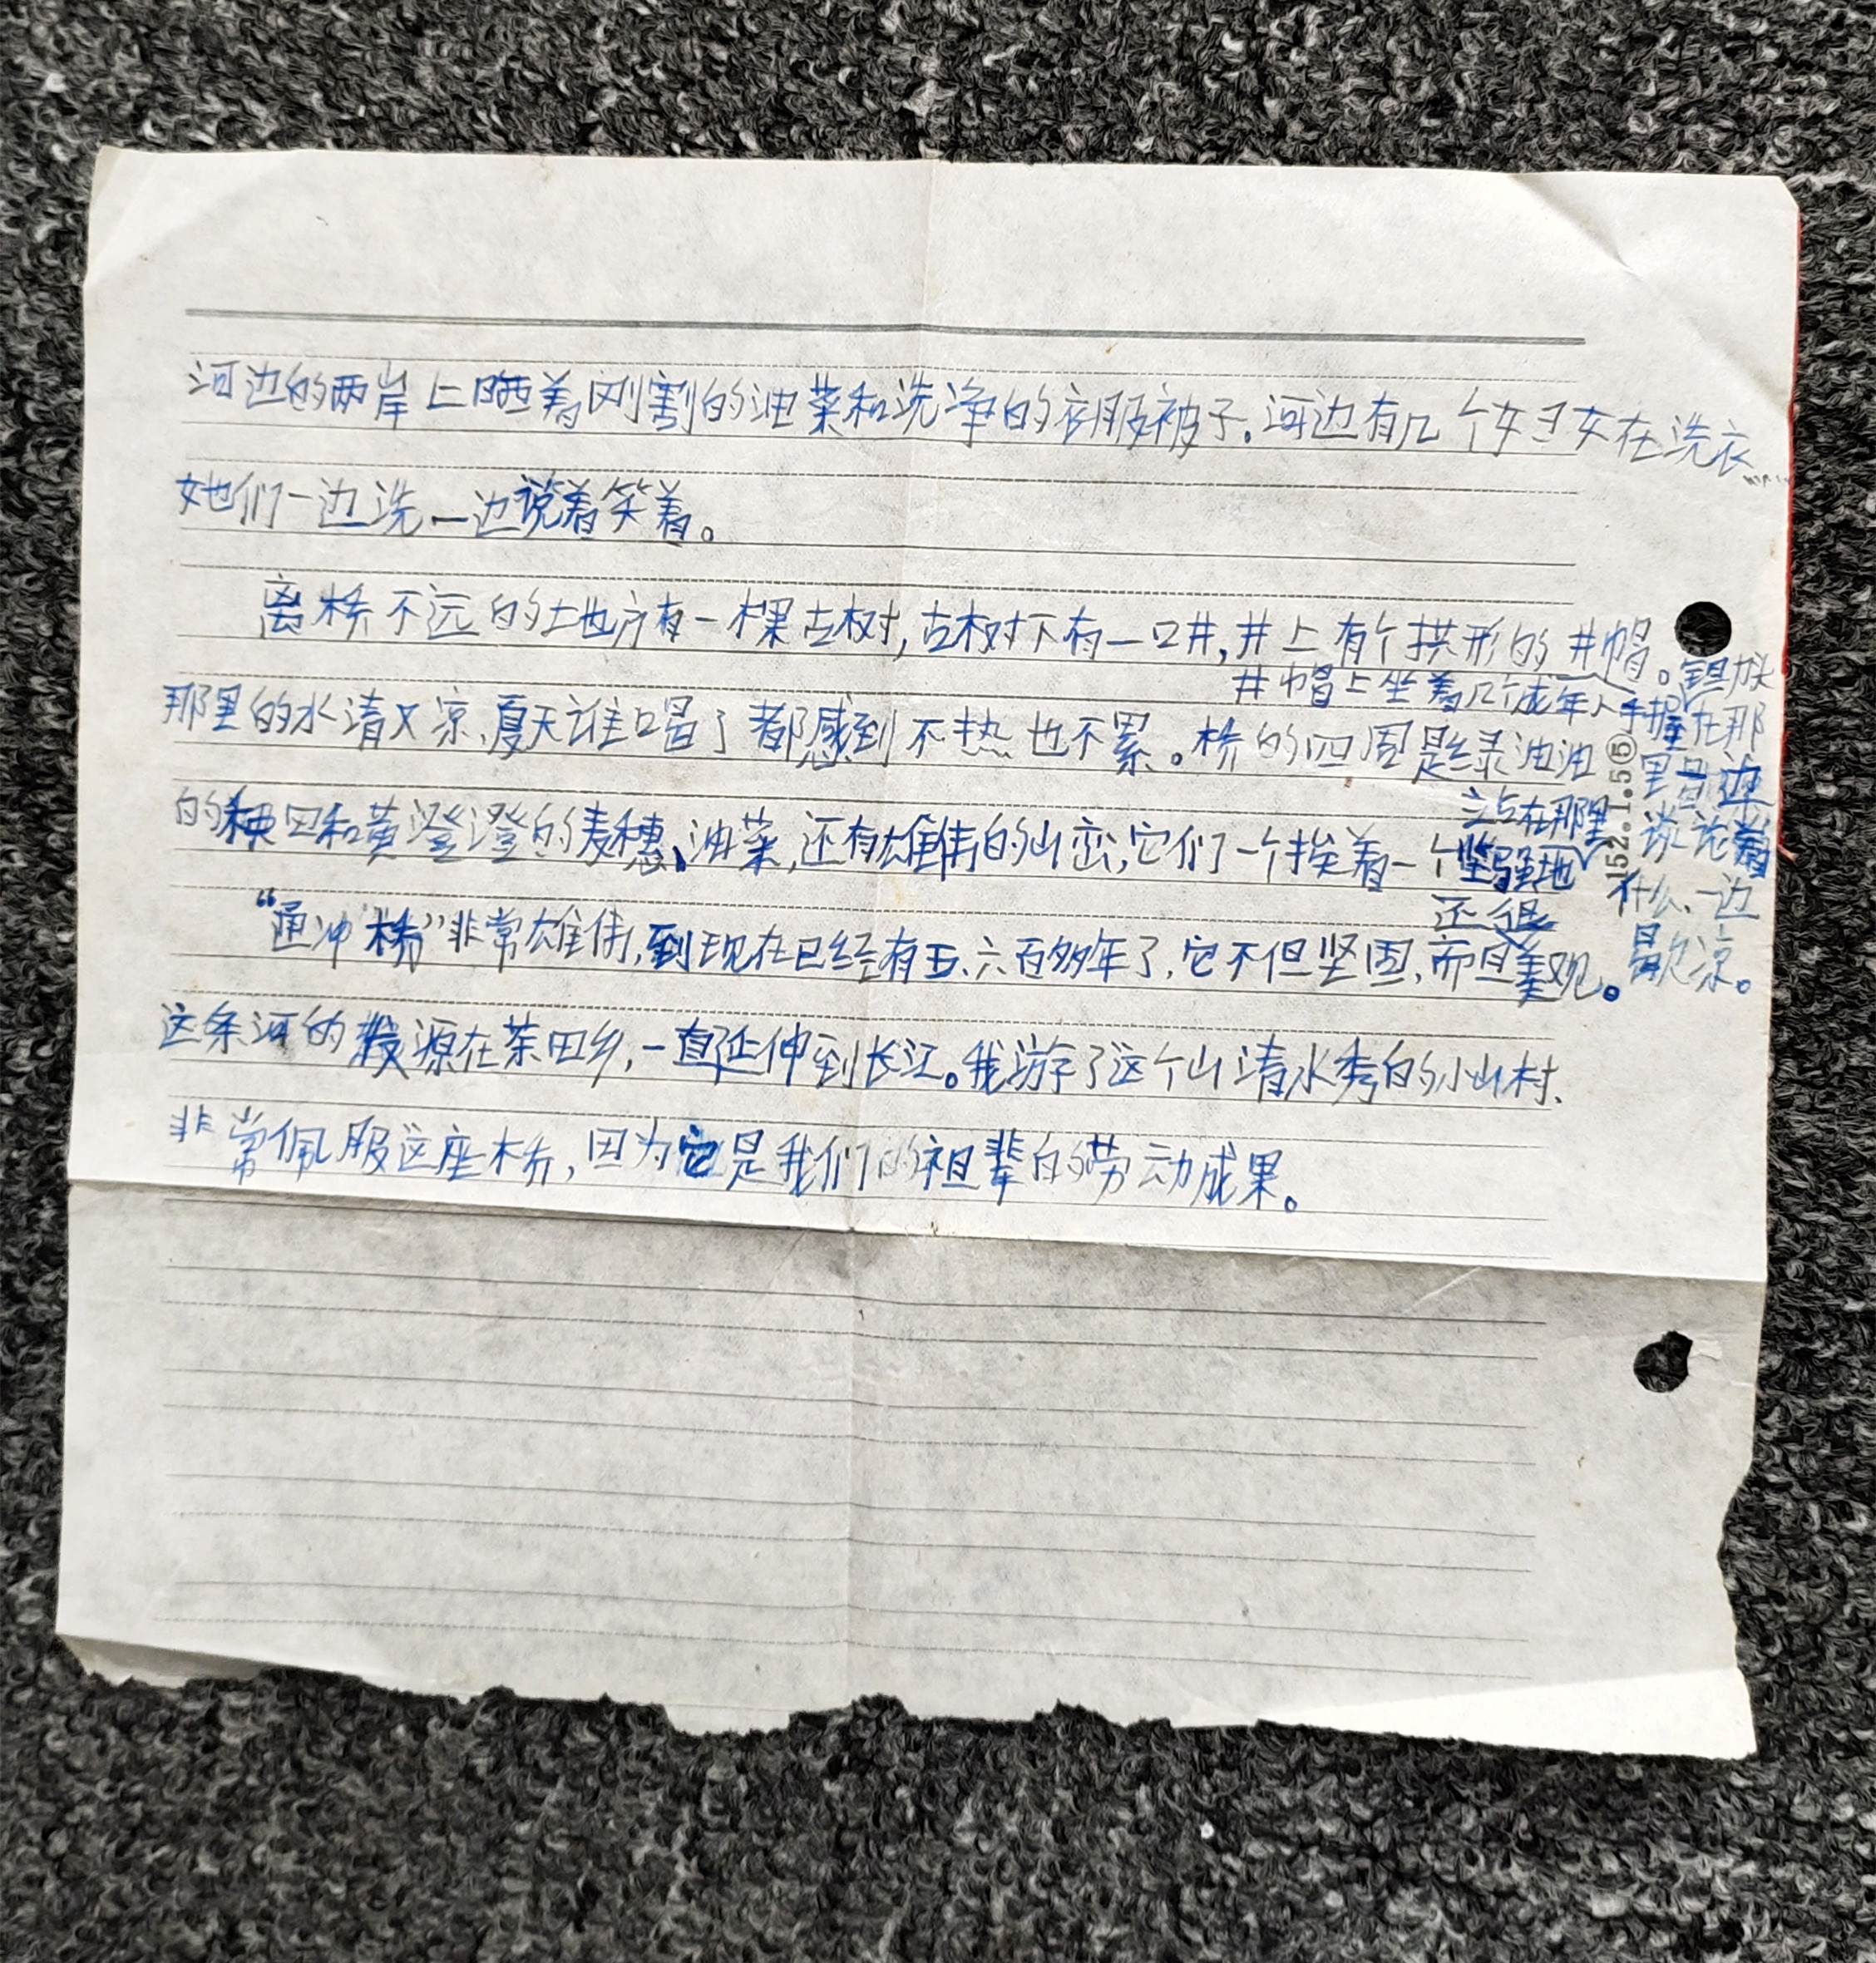 河边的两岸上晒着刚割的油菜和洗净的衣服被子。河边有几个妇女在洗衣……
她们一边洗一边说着笑着。
离桥不远的土地方有一棵古树,古树下有一口井,井上有个拱形的井帽。
井帽上坐着几个成年人手握锄头在那
里一边
谈论着
什么、一边
歇凉。
那里的水清又凉、夏天谁喝了都感到不热也不累。桥的四周是绿油油
的秧田和黄澄澄的麦穗、油菜,还有雄伟的山峦,它们一个挨着一个坚强地
立在那里
152.1.5⑤
“通冲桥”非常雄伟,到现在已经有五、六百多年了,它不但坚固,而且还很美观。
这条河的发源在茶田乡,一直延伸到长江。我游了这个山清水秀的小山村、
非常佩服这座桥,因为它是我们的祖辈的劳动成果。